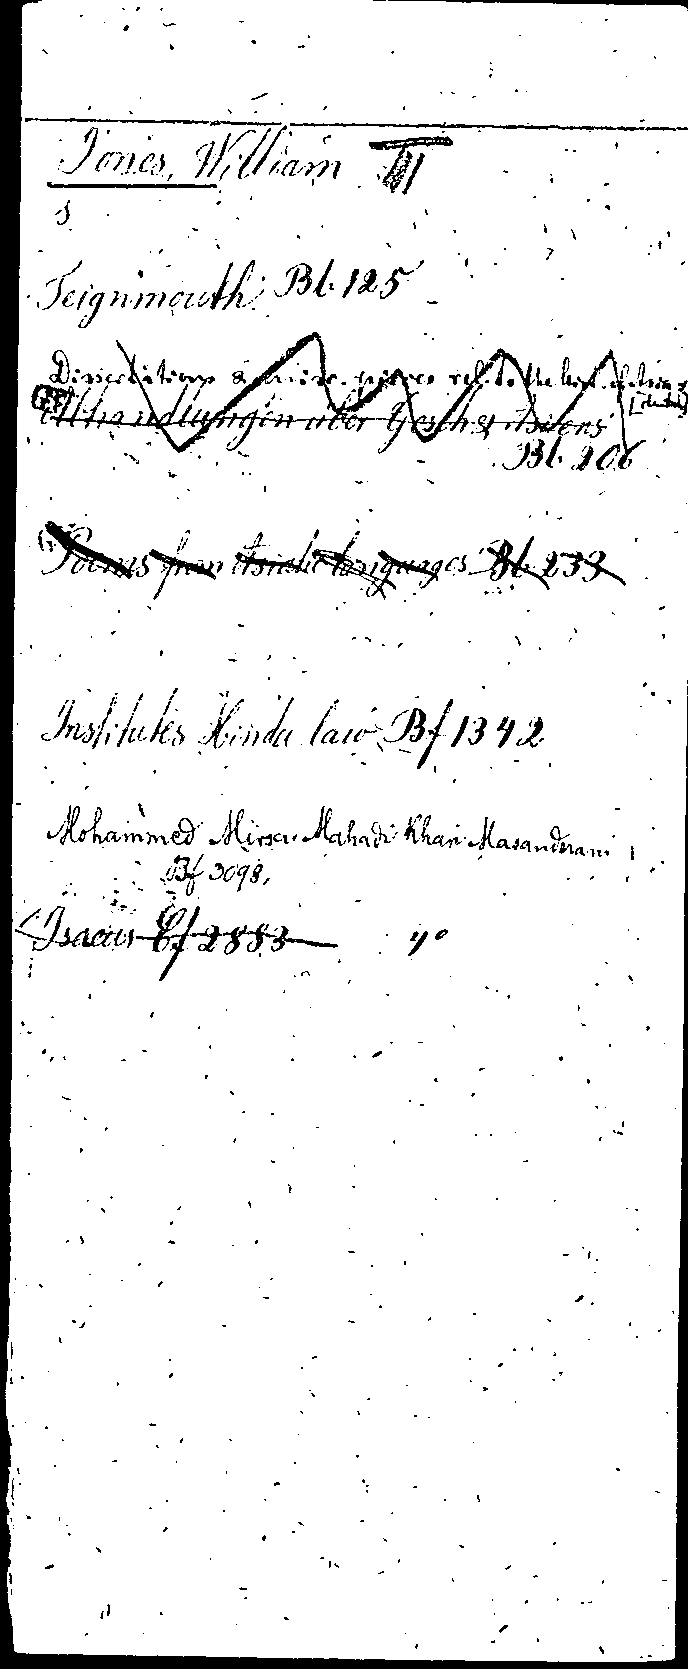 Jones, William III
s
Teignmouth: Bl. 125
Dissertations & misc. pieces rel. to the hist. of
Abhandlungen über Gesch. Asiens
Bl. 206
Poems from Asiatic languages Bl. 233
Institutes Hindu law Bf 1342
Mohammed Mirza Mahadi Khan Masanderani
Bf 3098.
Isaeus Cf 2883 4°